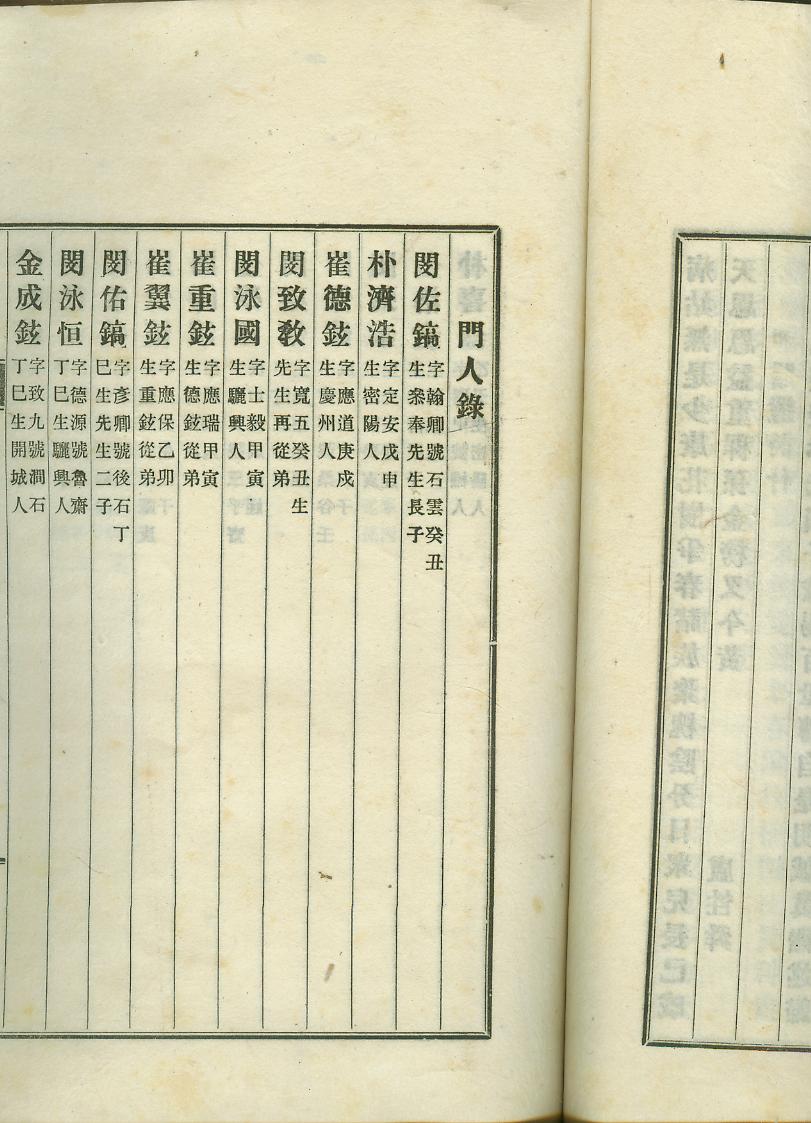 門人錄
閔佐鎬 字翰卿號石雲癸丑生叅奉先生長子
朴濟浩 字定安戊申生密陽人
崔德鉉 字應道庚戍生慶州人
閔致敎 字寬五癸丑生先生再從弟
閔泳國 字士毅甲寅生驪興人
崔重鉉 字應瑞甲寅生德鉉從弟
崔翼鉉 字應保乙卯生重鉉從弟
閔佑鎬 字彥卿號後石丁巳生先生二子
閔泳恒 字德源號魯齋丁巳生驪興人
金成鉉 字致九號澗石丁巳生開城人